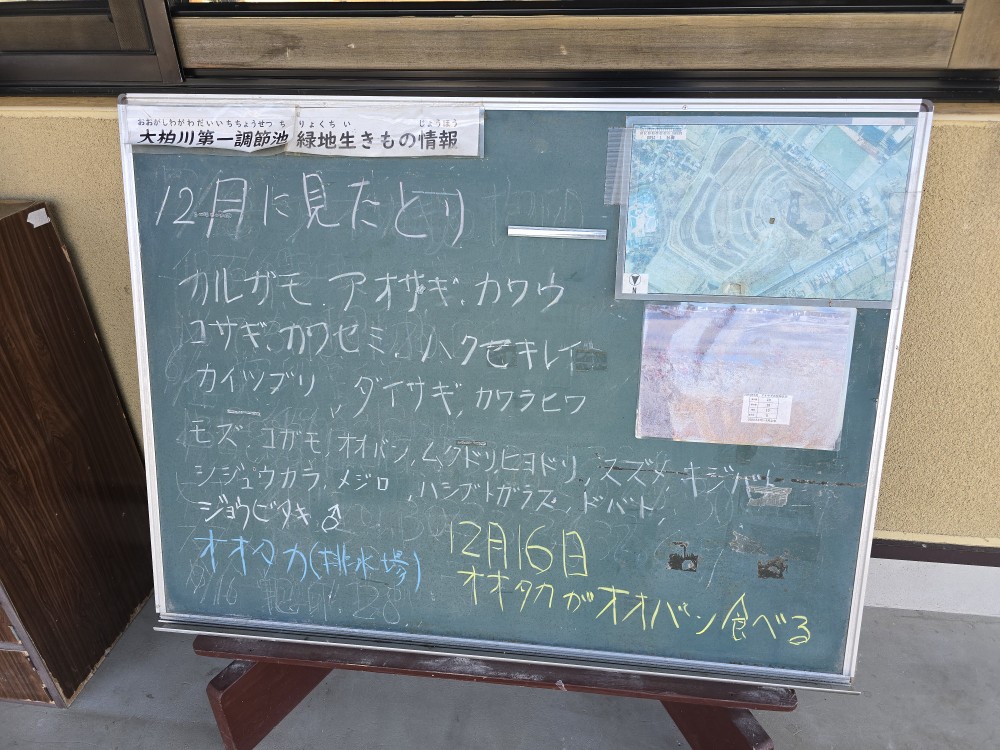 おおがしわがわだいいちちょうせつ ち りょくち い じょうほう
大柏川第一調節池 緑地生きもの情報
12月に見たとり
カルガモ、アオサギ、カワウ
コサギ、カワセミ、ハクセキレイ
カイツブリ、ダイサギ、カワラヒワ
モズ、コガモ、オオバン、ムクドリ、ヒヨドリ、スズメ、キジバト
シジュウカラ、メジロ、ハシブトガラス、ドバト、
ジョウビタキ♂
オオタカ(排水場)
12月16日
オオタカがオオバン食べる
N